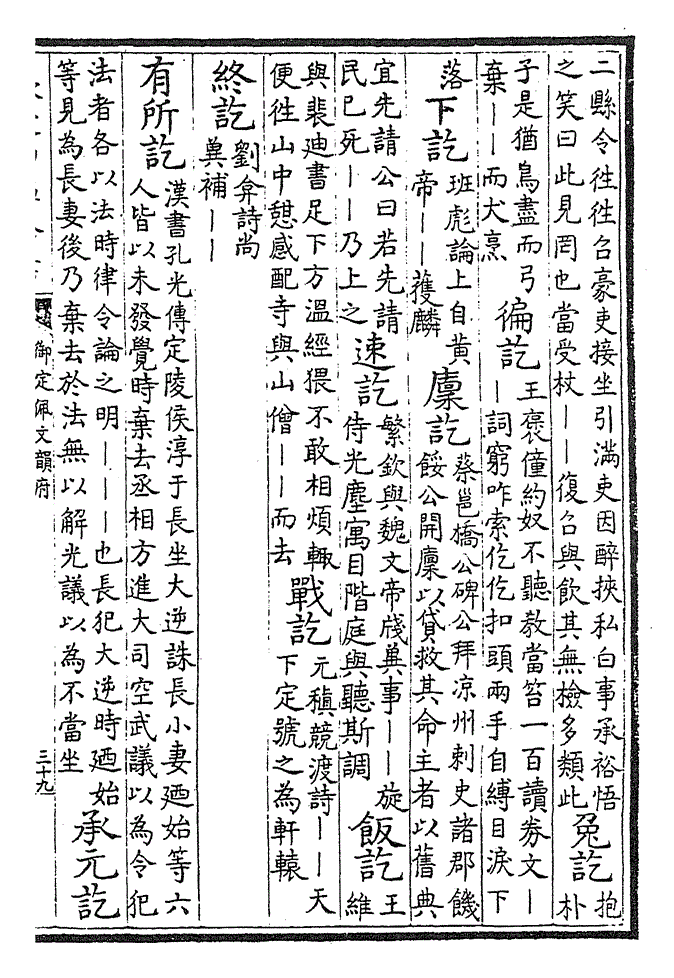 二縣令徃徃召豪吏接坐引滿吏因醉挾私白事承裕悟
之笑曰此見罔也當受杖丨丨復召與飲其無檢多類此
兔訖
抱
朴
子是猶鳥盡而弓
棄丨丨而犬烹
徧訖
王褒僮約奴不聽教當笞一百讀劵文丨
丨詞窮咋索仡仡扣頭兩手自縛目淚下
落
下訖
班彪論上自黃
帝丨丨獲麟
廩訖
蔡邕橋公碑公拜凉州刺史諸郡饑
餒公開廩以貸救其命主者以舊典
宜先請公曰若先請
民巳死丨丨乃上之
速訖
繁欽與魏文帝牋兾事丨丨旋
侍光塵寓目階庭與聽斯調
飯訖
王
維
與裴迪書足下方溫經猥不敢相煩輙
便徃山中憇感配寺與山僧丨丨而去
戰訖
元稹競渡詩丨丨天
下定號之為軒轅
終訖
劉弇詩尚
兾補丨丨
有所訖
漢書孔光傳定陵侯淳于長坐大逆誅長小妻廼始等六
人皆以未發覺時棄去丞相方進大司空武議以為令犯
法者各以法時律令論之明丨丨丨也長犯大逆時廼始
等見為長妻後乃棄去於法無以解光議以為不當坐
承元訖
御定佩文韻府
三十九